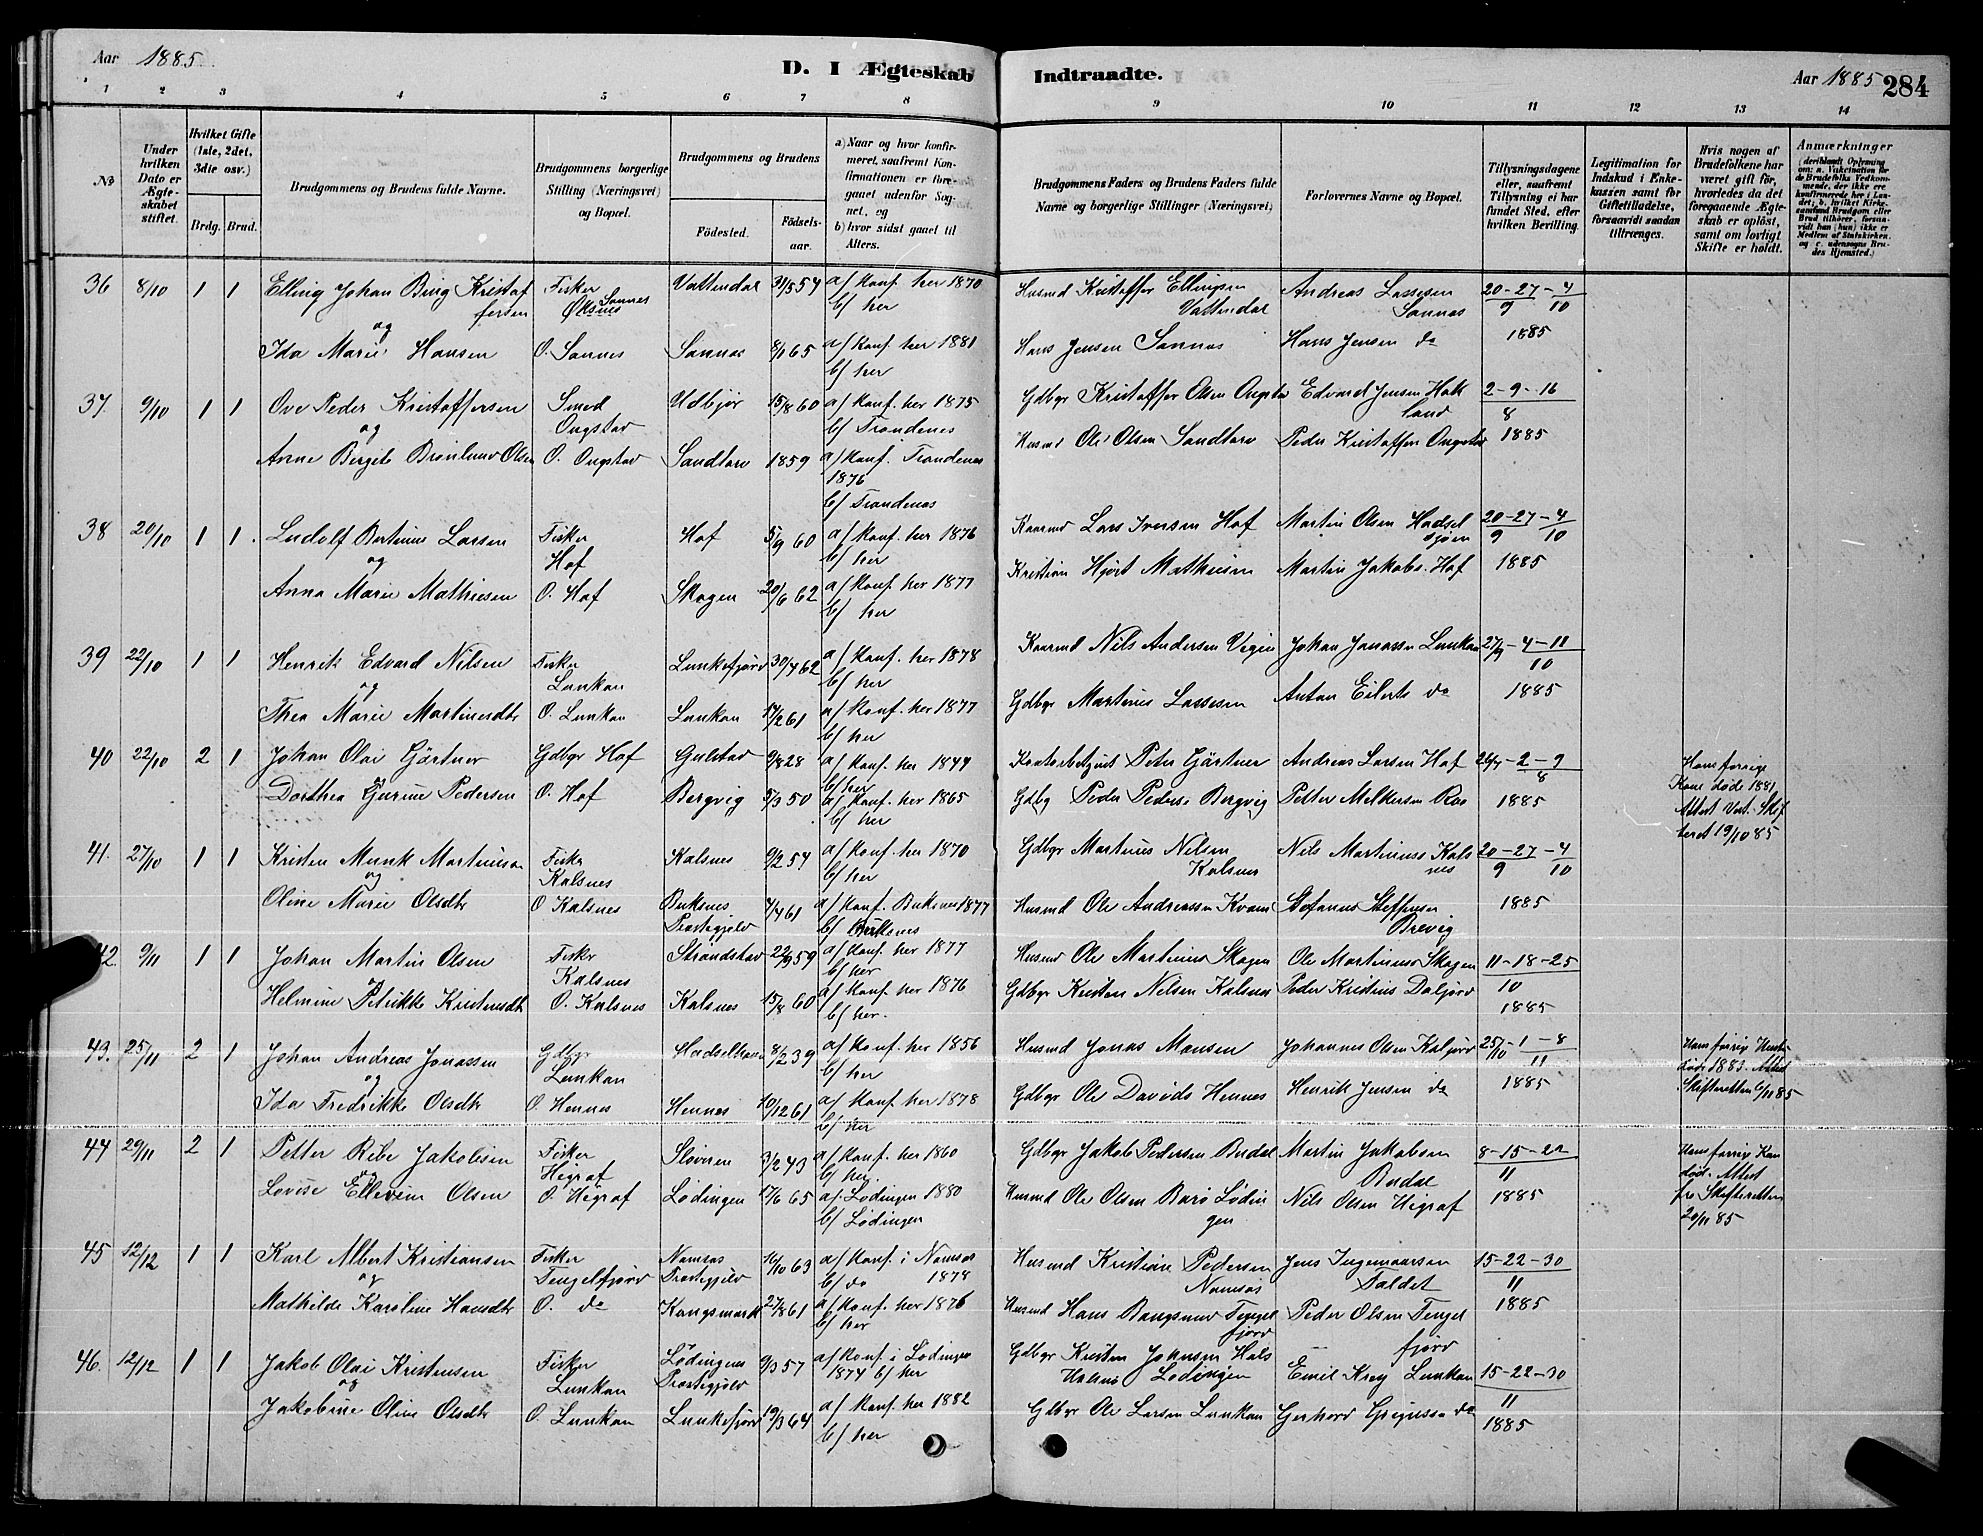 Aar 1885.
D. I Ægteskab Indtraadte.
Aar 1885 284
1 2 3 4 5 6 7 8 9 10 11 12 13 14
No
Under hvilken Dato er Ægteskabet stiftet.
Hvilket Gifte (1ste, 2det, 3die osv.)
Brdg. Brud.
Brudgommens og Brudens fulde Navne.
Brudgommens borgerlige Stilling (Næringsvei) og Bopæl.
Brudgommens og Brudens
Födested.
Födselsaar.
a) Naar og hvor konfirmeret, saafremt Konfirmationen er foregaaet udenfor Sognet, og
b) hvor sidst gaaet til Alters.
Brudgommens Faders og Brudens Faders fulde Navne og borgerlige Stillinger (Næringsvei)
Forlovernes Navne og Bopæl.
Tillysningsdagene eller, saafremt Tillysning ei har fundet Sted, efter hvilken Bevilling.
Legitimation for Indskud i Enkekassen samt for Giftetilladelse, forsaavidt saadan tiltrænges.
Hvis nogen af Brudefolkene har været gift før, hvorledes da det foregaaende Ægteskab er oplöst, samt om lovligt Skifte er holdt.
Anmærkninger
36 8/10 1 1 Elling Johan Bing Kristoffersen Fisker Sannes Øksnes Vattendal 31/5 54 a/ konf her 1870 b/ her Husmd Kristoffer Ellingsen Vattendal Andreas Lassesen Sannes 20-27-4 9 10
og
Ida Marie Hansen O. Sannes Sannes 8/1 65 a/ konf. her 1881 b/ her Hans Jensen Sannes Hans Jensen do 1885
37 9/10 1 1 Ove Peder Kristoffersen Smed Ongstad Udbjør 15/8 60 a/ konf. her 1875 b/ Trondenes Gdbgr Kristoffer Olsen Ongstad Edvard Jensen Hokland 2-9-16 8
og
Anne Bergite Olsen O. Ongstad Sandtorv 1859 a/ konf. Trondenes 1876 b/ Trondenes Husmd Ole Olsen Sandtorv Peder Kristoffers Ongstad 1885
38 20/10 1 1 Ludolf Bertinus Larsen Fisker Hof Hof 5/9 60 a/ konf. her 1876 b/ her Kaarmd Lars Iversen Hof Martin Olsen Hadselsjøen 20-27-4 9 10
og
Anna Marie Mathiesen O. Hof Skagen 20/6 62 a/ konf. her 1877 b/ her Kristian Hjort Mathiesen Martin Jakobs. Hof 1885
39 22/10 1 1 Henrik Edvard Nilsen Fisker Lunkan Lunkefjord 30/4 62 a/ konf. her 1878 b/ her Kaarmd Nils Andersen Johan Jonassen Lunkan 27/9-4-11 10
og
Thea Marie Martinusdtr O. Lunkan Lunkan 17/2 61 a/ konf. her 1877 b/ her Gdbgr Martinus Lassesen Anton Eilerts do 1885
40 22/10 2 1 Johan Olai Gärtner Gdbgr Hof Gulstad 9/8 28 a/ konf. her 1844 b/ her Peter Gärtner Andreas Larsen Hof 26/7-2-9 8 Hans forrige Kone døde 1881, Attest
og
Dorthea Gurine Pedersen O. Hof Bergvig 5/3 50 a/ konf. her 1865 b/ her Gdbg Peder Peders Bergvig Petter Melkersen 1885 19/10 85
41. 27/10 1 1 Kristen Munk Martinussen Fisker Kalsnes Kalsnes 9/2 54 a/ konf. her 1870 b/ her Gdbgr Martinus Nilsen Kalsnes Nils Martinuss Kalsnes 20-27-4 9 10
og
Oline Marie Olsdtr O Kalsnes Buksnes Prestegjeld 7/4 61 a/ konf. Buksnes 1877 b/ Buksnes Husmd Ole Andreassen Stefanus Steffensen Brevig 1885
42. 9/11 1 1 Johan Martin Olsen Fisker Kalsnes Strandstad 22/9 59 a/ konf. her 1877 b/ her Husmd Ole Martinus Skagen Ole Martinuss Skagen 11-18-25 10
Helmine Petrikke Kristensdtr O. Kalsnes Kalsnes 15/8 60 a/ konf. her 1876 b/ her. Gdbgr Kristen Nilsen Kalsnes Peder Kristians 1885
43. 25/11 2 1 Johan Andreas Jonassen Gdbgr Lunkan Hadselhavn 8/2 39 a/ konf. her 1856 b/ her Husmd Jonas Monsen Johannes Olsen Kaljord 25/10-1-8 11 Hans forrige Hustru døde 1883. Attest Skifteretten 6/11 85
og
Ida Fredrikke Olsdtr O. Hennes Hennes 10/12 61 a/ konf. her 1878 b/ her Gdbgr Ole Davids Hennes Henrik Jensen do 1885
44 29/11 2 1 Petter Ribe Jakobsen Fisker Higraf 3/2 43 a/ konf. her 1860 b/ her. Gdbgr Jakob Pedersen Budal Martin Jakobsen Budal 8-15-22 11 Hans forrige Kone død. Attest fra Skifteretten 20/11 85
og
Lovise Ellevine Olsen O. Higraf Lødingen 17/6 65 a/ Lødingen 1880 b/ Lødingen Husmd Ole Olsen Barø Lødingen Nils Olsen Higraf 1885
45 12/12 1 1 Karl Albert Kristiansen Fisker Tengelfjord Namsos Prestegjeld 16/10 63 a/ konf. i Namsos 1878 b/ do Husmd Kristian Pedersen Namsos Jens Ingemarsen Faldet 15-22-30 11
og
Mathilde Karoline Hansdtr O. do Kongsmark 27/8 61 a/ konf. her 1876 b/ her Husmd Hans Tengelfjord Peder Olsen Tengelfjord 1885
46. 12/12 1 1 Jakob Olai Kristensen Fisker Lunkan Lødingens Prestegjeld 9/3 57 a/ konf. i Lødingen 1874 b/ her Gdbgr Kristen Johnsen Lødingen Emil Krey Lunkan 15-22-30 11
og
Jakobine Oline Olsdtr O. Lunkan Lunkefjord 19/3 64 a/ konf. her 1882 b/ her Gdbgr Ole Larsen Lunkan Gerhard do 1885